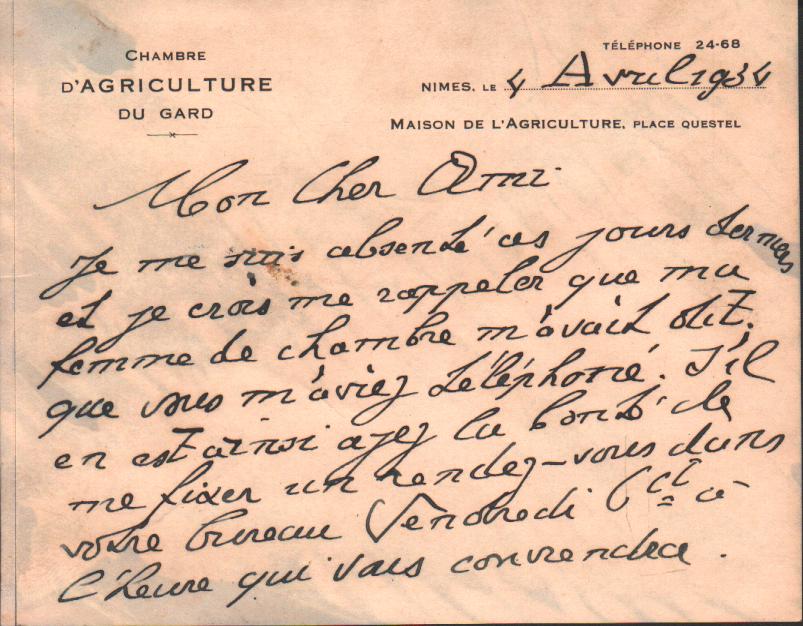 CHAMBRE
D'AGRICULTURE
DU GARD
TÉLÉPHONE 24-68
NIMES, LE 4 Avril 1934
MAISON DE L'AGRICULTURE, PLACE QUESTEL
Mon Cher Ami
Je me suis absenté ces jours derniers
et je crois me rappeler que ma
femme de chambre m'avait dit
que vous m'aviez téléphoné. S'il
en est ainsi ayez la bonté de
me fixer un rendez-vous dans
votre bureau Vendredi 6 ct à
l'heure qui vous conviendra.